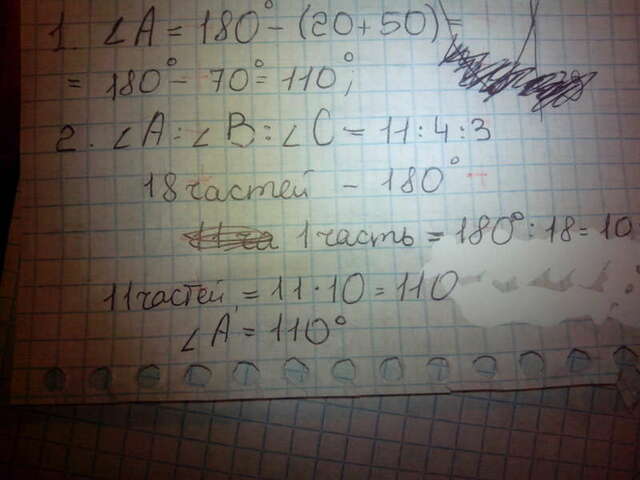 1. ∠A = 180° - (20 + 50) =
= 180° - 70° = 110°;
2. ∠A : ∠B : ∠C = 11 : 4 : 3
18 частей - 180°
1 часть = 180° : 18 = 10
11 частей = 11 · 10 = 110
∠A = 110°